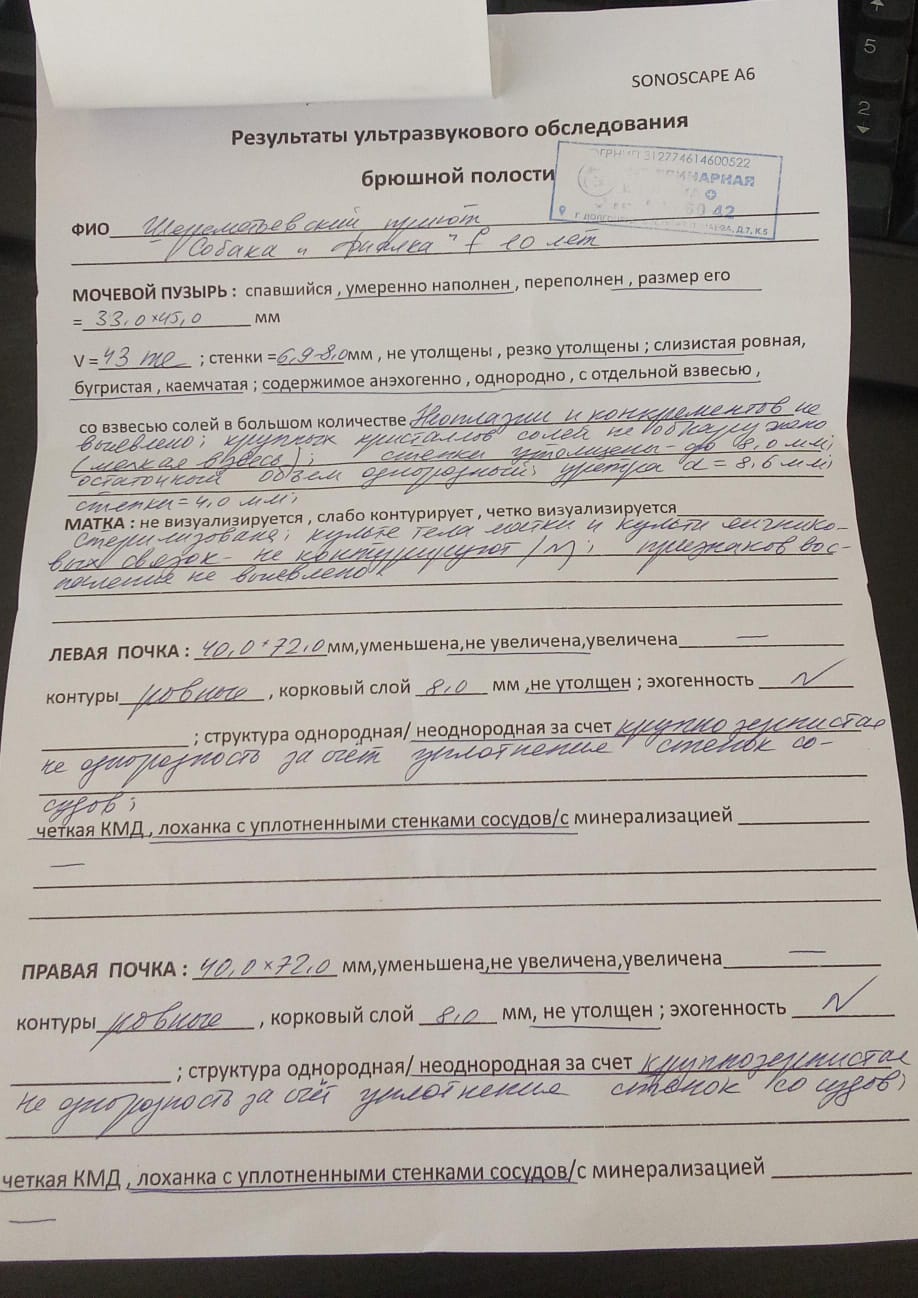 SONOSCAPE A6
Результаты ультразвукового обследования
брюшной полости
ОГРНИП 312774614600522
42
ФИО Шереметьевский приют
Собака "Фиалка" f 10 лет
МОЧЕВОЙ ПУЗЫРЬ : спавшийся , умеренно наполнен , переполнен , размер его
= 33,0×45,0 мм
V = 43 мл ; стенки = 6,9-8,0 мм , не утолщены , резко утолщены ; слизистая ровная,
бугристая , каемчатая ; содержимое анэхогенно , однородно , с отдельной взвесью ,
со взвесью солей в большом количестве Неоплазии и конкрементов не
выявлено; крупных кристаллов солей не
(мелкая взвесь); стенки утолщены - до 8,0 мм;
остаточный объем однородный; уретра d = 8,6 мм;
стенки = 4,0 мм;
МАТКА : не визуализируется , слабо контурирует , четко визуализируется
Стерилизована; культе тела матки и культи яичнико-
вых связок - не контурируют /N/; признаков вос-
паления не выявлено.
ЛЕВАЯ ПОЧКА : 40,0*72,0 мм,уменьшена,не увеличена,увеличена —
контуры ровные , корковый слой 8,0 мм ,не утолщен ; эхогенность N
; структура однородная/ неоднородная за счет крупно зернистая
не однородность за счёт уплотнения стенок со-
судов;
четкая КМД , лоханка с уплотненными стенками сосудов/с минерализацией
—
ПРАВАЯ ПОЧКА : 40,0×72,0 мм,уменьшена,не увеличена,увеличена —
контуры ровные , корковый слой 8,0 мм, не утолщен ; эхогенность N
; структура однородная/ неоднородная за счет крупнозернистая
не однородность за счёт уплотнения стенок сосудов;
четкая КМД , лоханка с уплотненными стенками сосудов/с минерализацией
—
5
2